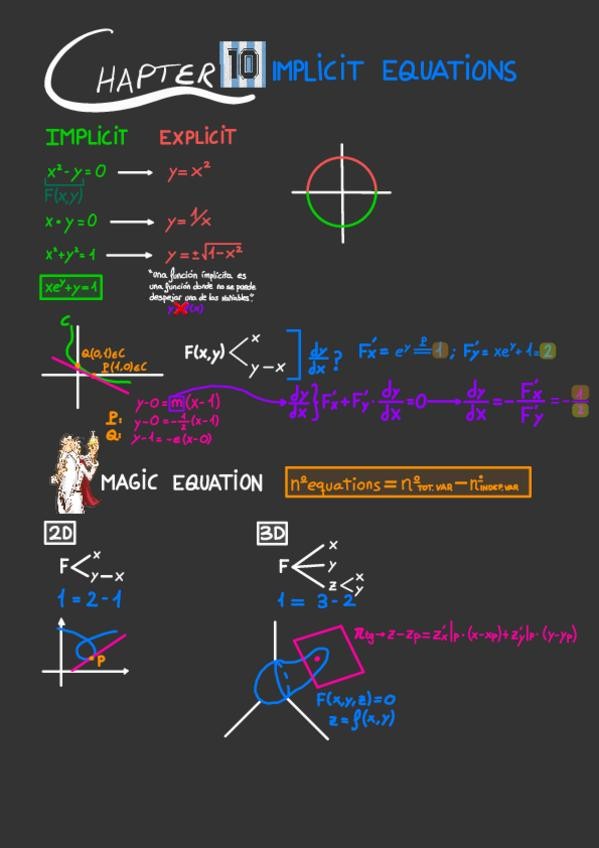 CHAPTER 10 IMPLICIT EQUATIONS
IMPLICIT EXPLICIT
x²-y=0 → y=x²
F(x,y)
x·y=0 → y=1/x
x²+y²=1 → y=±√1-x²
xeʸ+y=1
"una función implícita es
una función donde no se puede
despejar una de las variables"
C
Q(0,1)∈C
P(1,0)∈C
F(x,y) < x
y-x
dy/dx?
F'x = eʸ =ᴾ= 1 ; F'y = xeʸ+1 = 2
y-0=m(x-1)
P: y-0=-1/2(x-1)
Q: y-1=-e(x-0)
dy/dx } F'x + F'y · dy/dx = 0 → dy/dx = - F'x/F'y = - 1/2
MAGIC EQUATION
nºequations = nºTOT.VAR - nºINDEP.VAR
2D
F < x
y-x
1 = 2-1
P
3D
F < x
y
z < x
y
1 = 3-2
πtg → z-zp = z'x|p·(x-xp)+z'y|p·(y-yp)
F(x,y,z)=0
z=f(x,y)